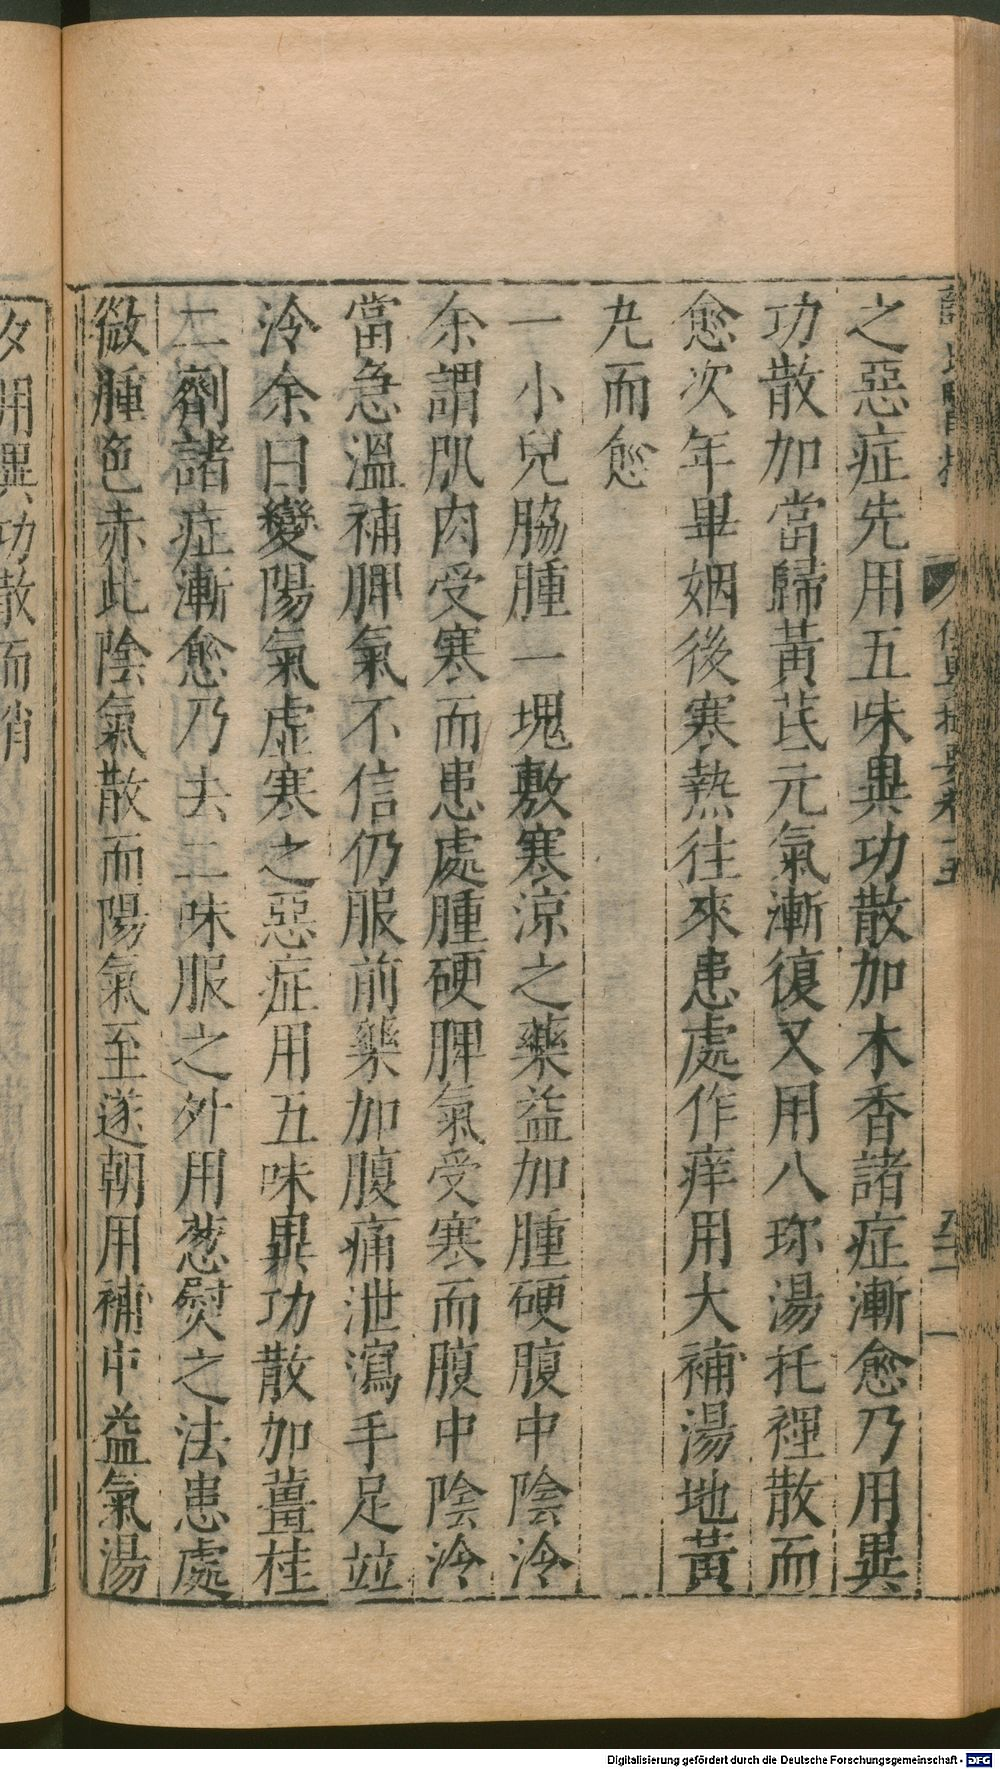 之惡症先用五味異功散加木香諸症漸愈乃用異
功散加當歸黃芪元氣漸復又用八珎湯托裡散而
愈次年畢姻後寒熱往來患處作痒用大補湯地黃
丸而愈
一小兒脇腫一塊敷寒涼之藥益加腫硬腹中陰冷
余謂肌肉受寒而患處腫硬脾氣受寒而腹中陰冷
當急溫補脾氣不信仍服前藥加腹痛泄瀉手足並
冷余曰變陽氣虛寒之惡症用五味異功散加薑桂
二劑諸症漸愈乃去二味服之外用葱熨之法患處
微腫色赤此陰氣散而陽氣至遂朝用補中益氣湯
夕用異功散而消
Digitalisierung gefördert durch die Deutsche Forschungsgemeinschaft - DFG